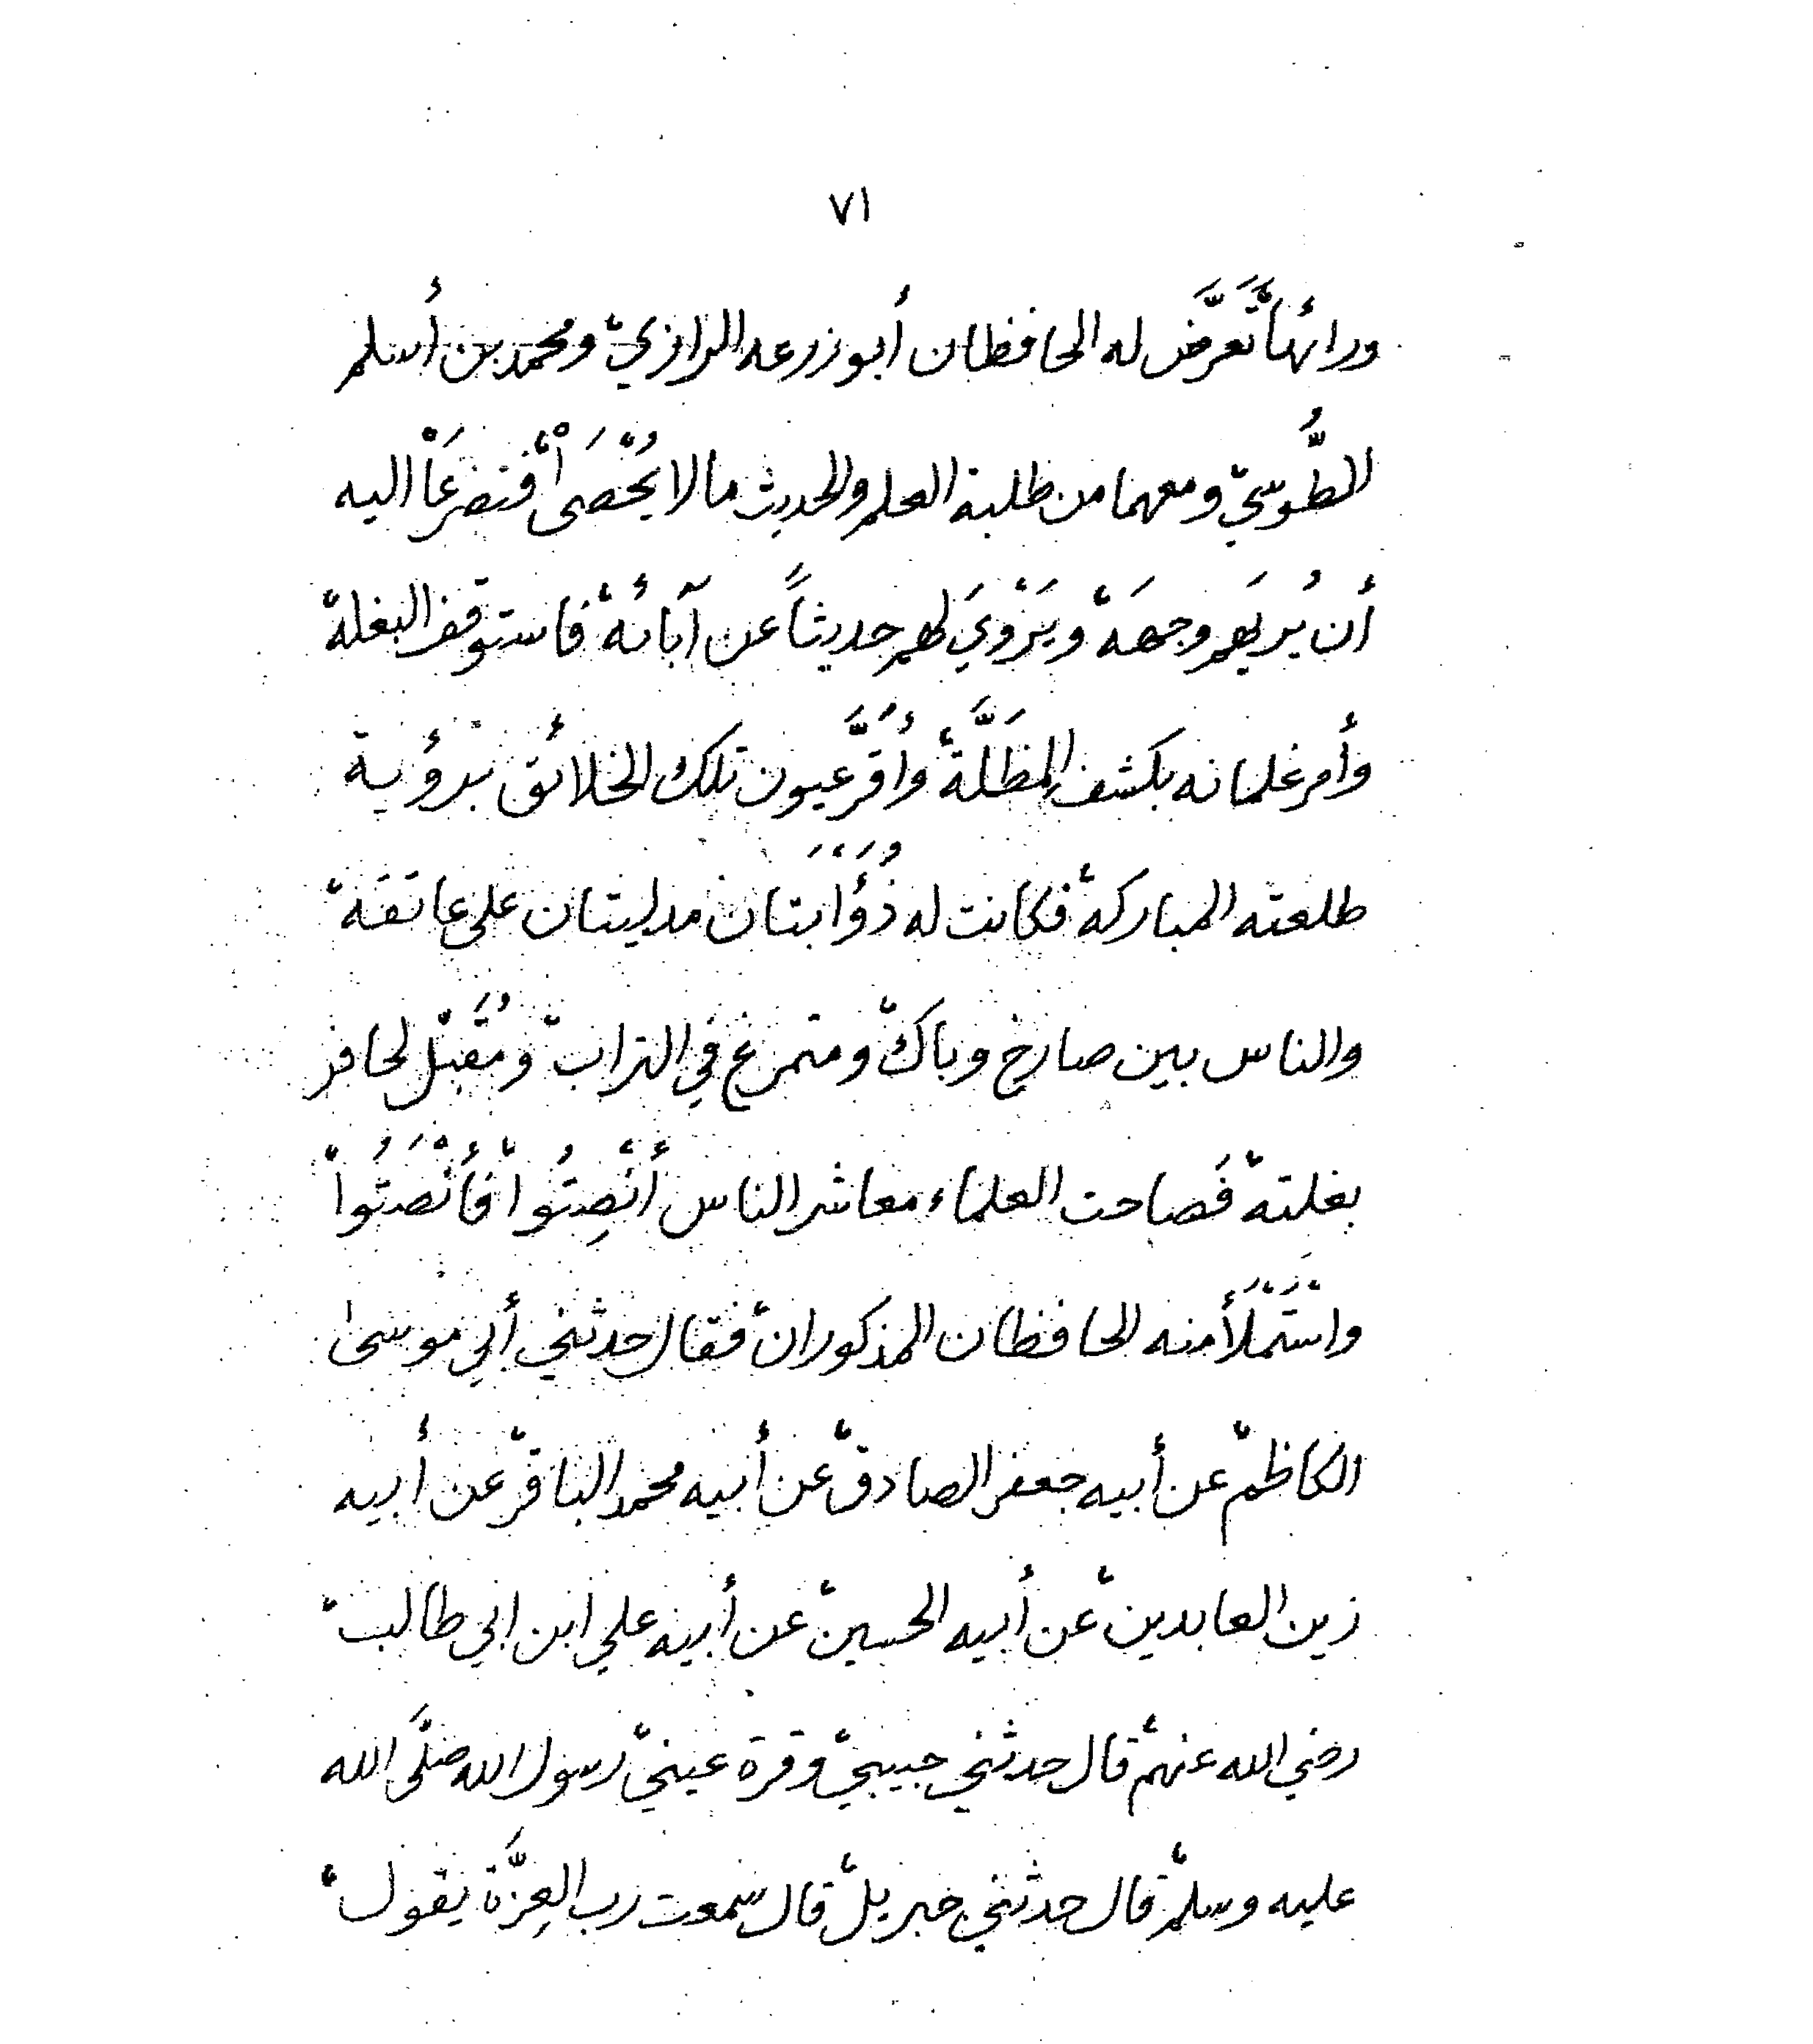 ٧١
ورائها تَعَرَّضَ له الحافظان أبو زرعه الرازي، ومحمد بن أسلم
الطُّوسي، ومعهما من طلبة العلم والحديث مالا يُحْصَى، فتضرعَا اليه
أن يُريَهم وجهَه، ويَرْويَ لهم حديثاً عن آبائه، فاستوقف البغلة،
وأمر غلمانه بكشف المظَلَّة، وأُقرَّ عيون تلك الخلائق برؤية
طلعته المباركة، فكانت له ذُؤَابَتان مدليتان على عاتقه،
والناس بين صارخ وباك، ومتمرغ في التراب، ومُقَبِّل لحافر
بغلته، فَصاحت العلماء معاشر الناس أَنْصِتُوا، فأَنْصَتُوا،
واسْتَمْلَأ منه الحافظان المذكوران، فقال حدثني أبي موسى
الكاظم، عن أبيه جعفر الصادق، عن أبيه محمد الباقر، عن أبيه
زين العابدين، عن أبيه الحسين، عن أبيه علي ابن ابي طالب،
رضي الله عنهم، قال حدثني حبيبي، وقرة عيني، رسول الله صلَّى الله
عليه وسلم، قال حدثني جبريل، قال سمعت رب العِزَّة يقول،